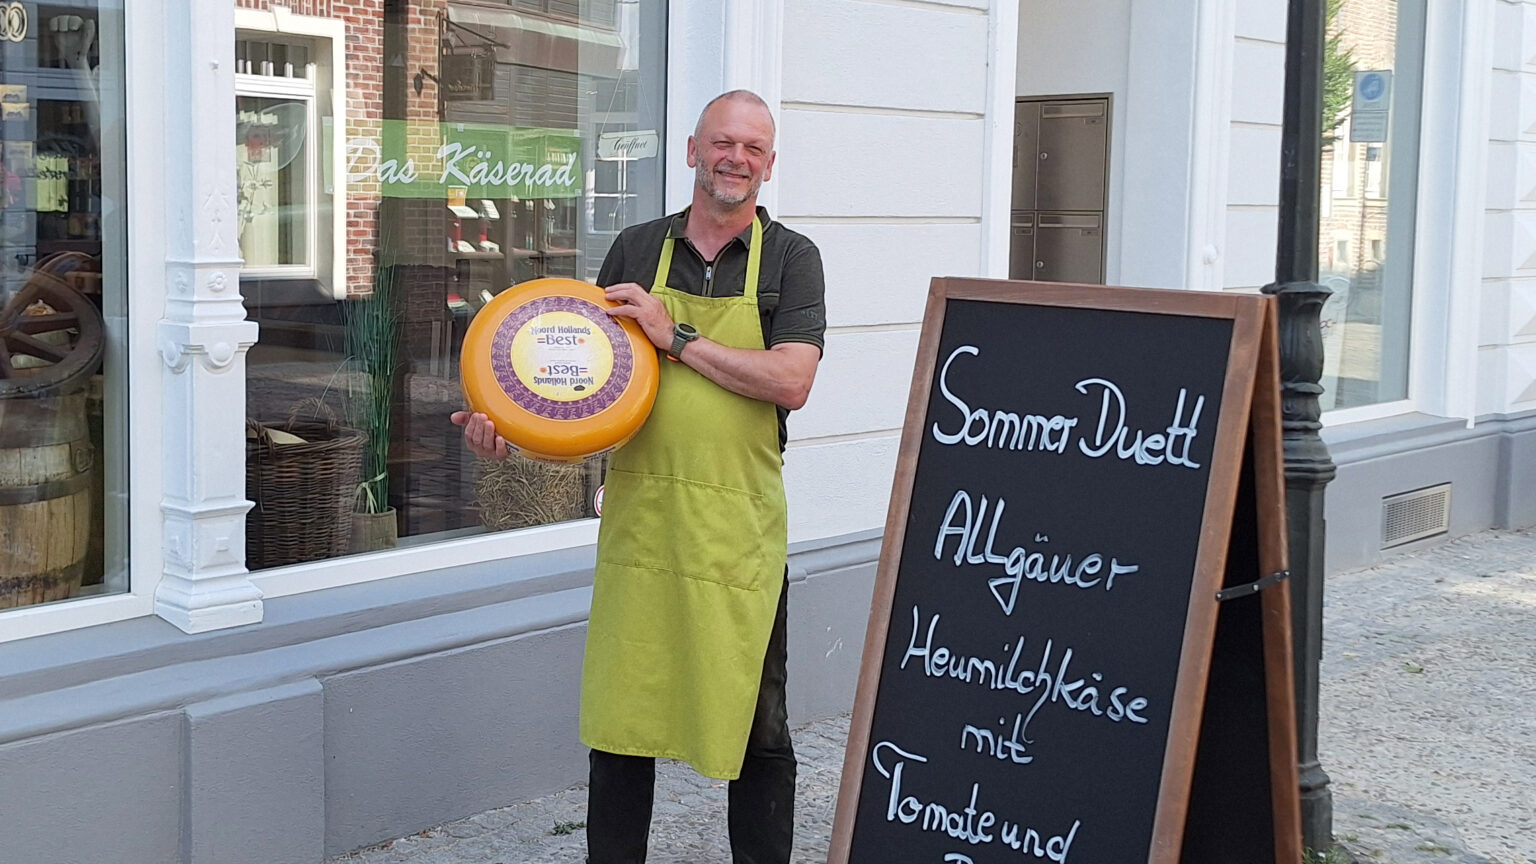 Das Käserad
Geöffnet
Noord Hollands
=Best
=Best
Noord Hollands
Sommer Duett
Allgäuer
Heumilchkäse
mit
Tomate und